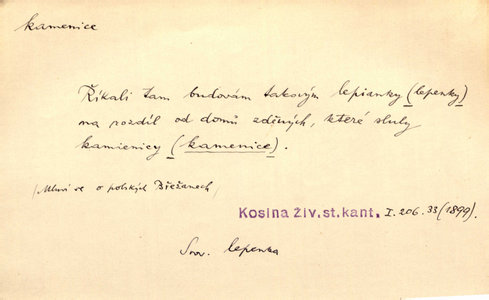 kamenice
Říkali tam budovám takovým lepianky (lepenky)
na rozdíl od domů zděných, které sluly
kamienicy (kamenice).
/Mluví se o polských Břežanech/
Kosina Živ.st.kant. I. 206. 33 (1899).
Srov. lepenka